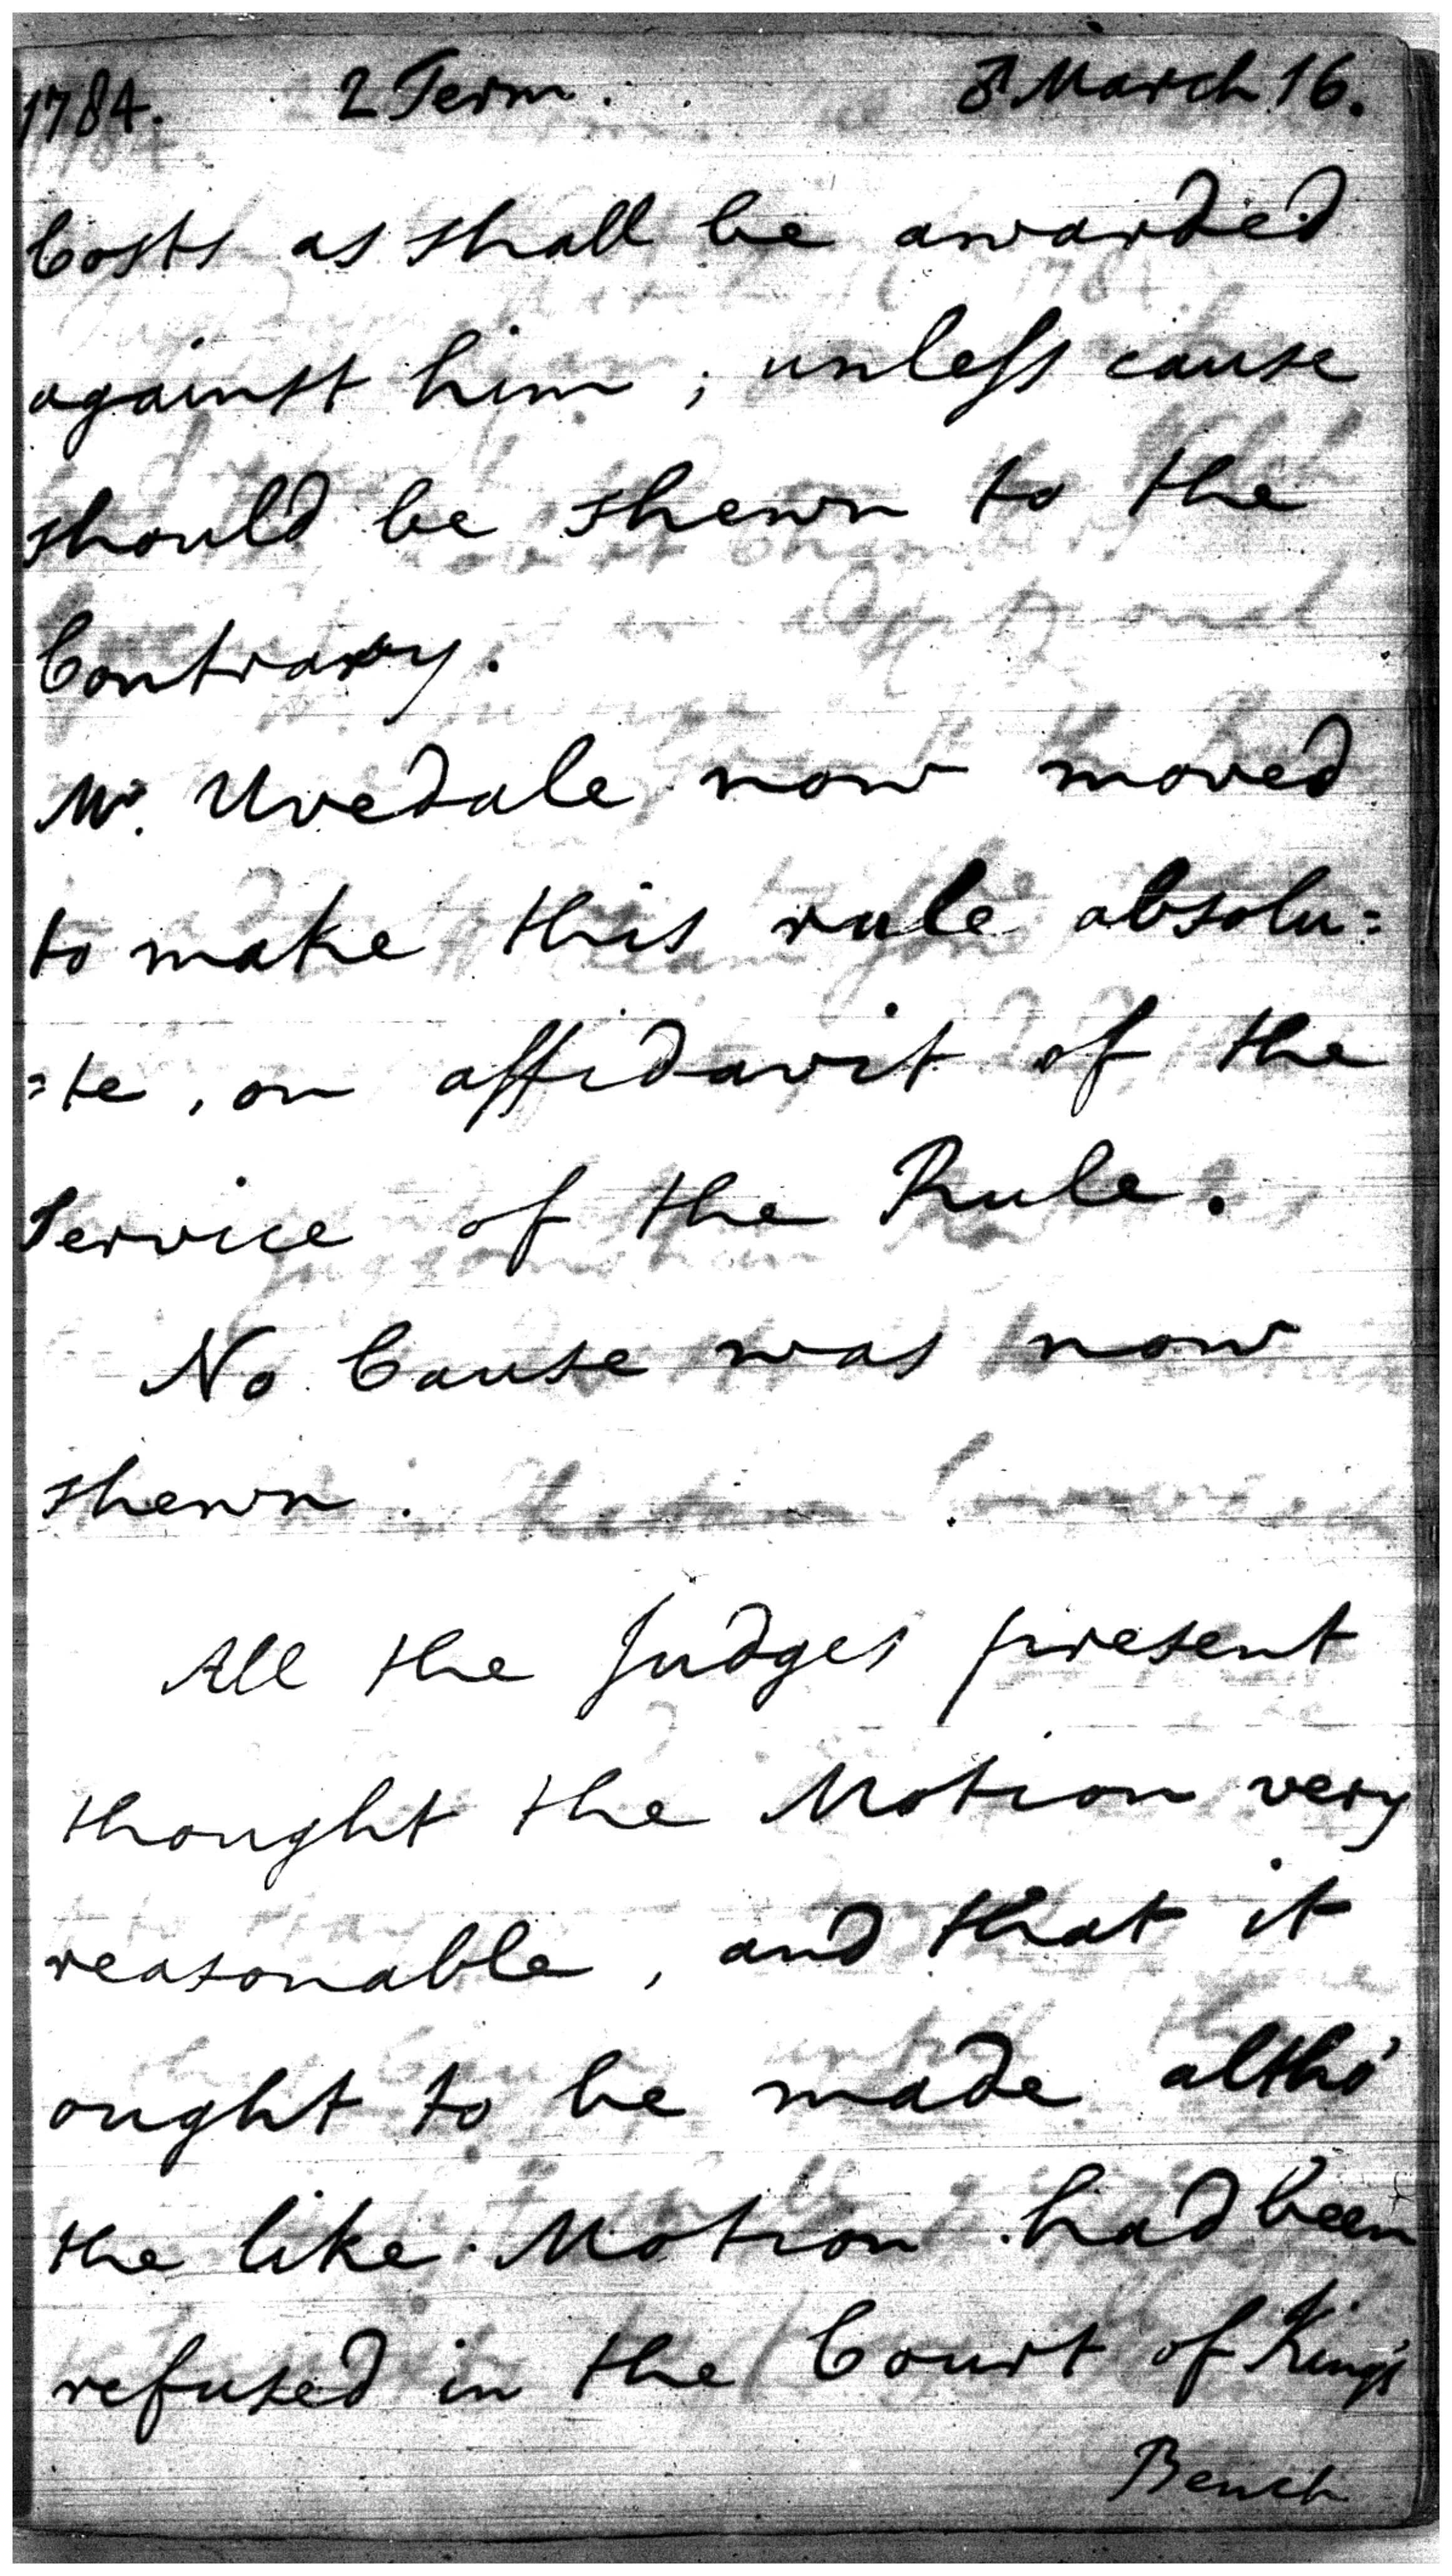 1784. 2 Term. ♂ March 16.
Costs as shall be awarded
against him ; unless cause
should be shewn to the
Contrary.
Mr. Uvedale now moved
to make this rule absolu=
=te, on affidavit of the
Service of the Rule.
No Cause was now
shewn.
All the Judges present
thought the Motion very
reasonable, and that it
ought to be made altho'
the like Motion had been
refused in the Court of King's
Bench